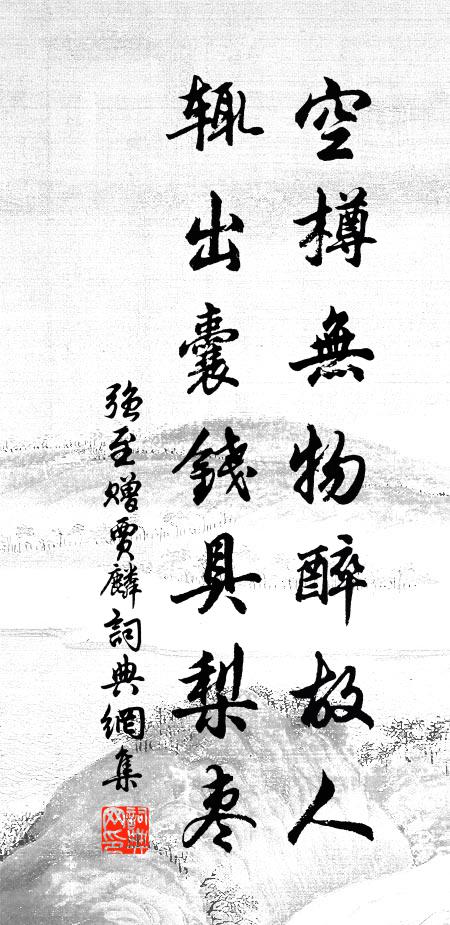 空樽無物醉故人
輒出囊錢具梨枣
强至赠贾麟詞典網集